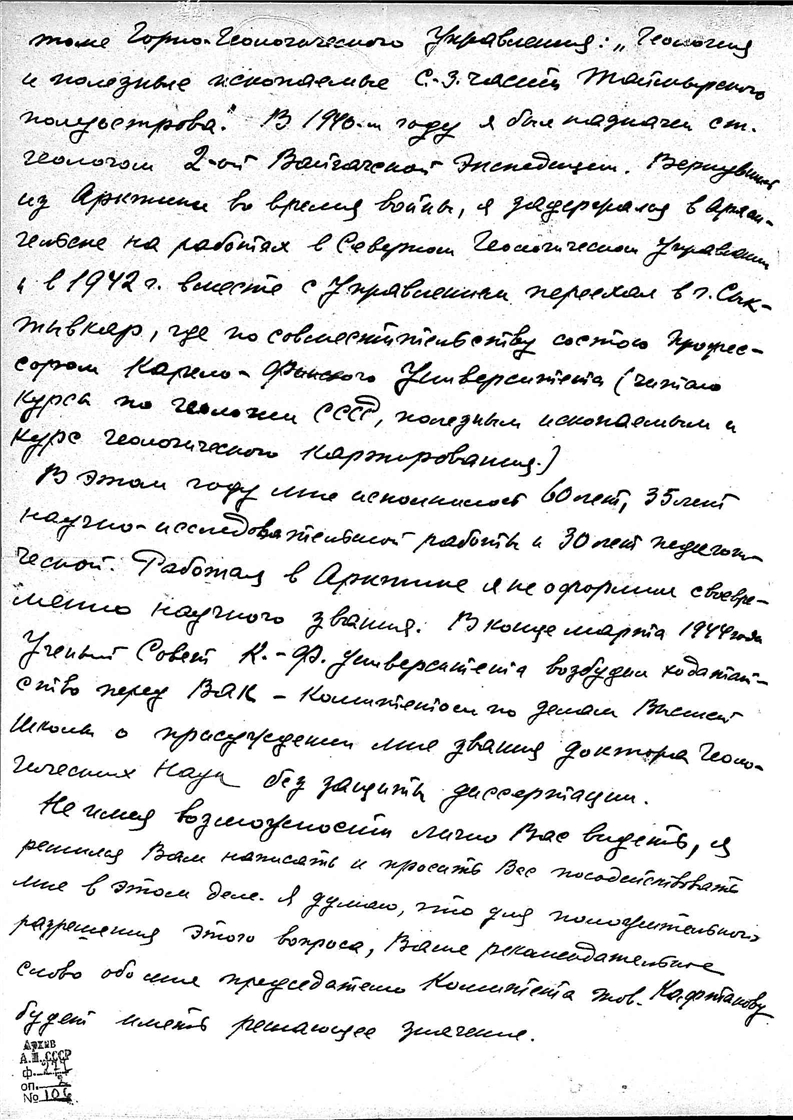 томе Горно-Геологического Управления: „Геология
и полезные ископаемые С.-З. части Таймырского
полуострова." В 1940-м году я был назначен ст.
геологом 2-ой Вайгачской Экспедиции. Вернувшись
из Арктики во время войны, я задержался в Архан-
гельске на работах в Северном Геологическом Управлении
и в 1942 г. вместе с Управлением переехал в г. Сык-
тывкар, где по совместительству состою профес-
сором Карело-Финского Университета (читаю
курсы по геологии СССР, полезным ископаемым и
курс геологического картирования.)
В этом году мне исполнилось 60 лет, 35 лет
научно-исследовательской работы и 30 лет педагоги-
ческой. Работая в Арктике я не оформил своевре-
менно научного звания. В конце марта 1944 года
Ученый Совет К.-Ф. Университета возбудил ходатай-
ство перед ВАК - Комитетом по делам Высшей
Школы о присуждении мне звания доктора Геоло-
гических Наук без защиты диссертации.
Не имея возможности лично Вас видеть, я
решился Вам написать и просить Вас посодействовать
мне в этом деле. Я думаю, что для положительного
разрешения этого вопроса, Ваше рекомендательное
слово обо мне председателю Комитета тов. Кафтанову
будет иметь решающее значение.
Архив
А.Н. СССР
ф. 277
оп. 2
№ 106